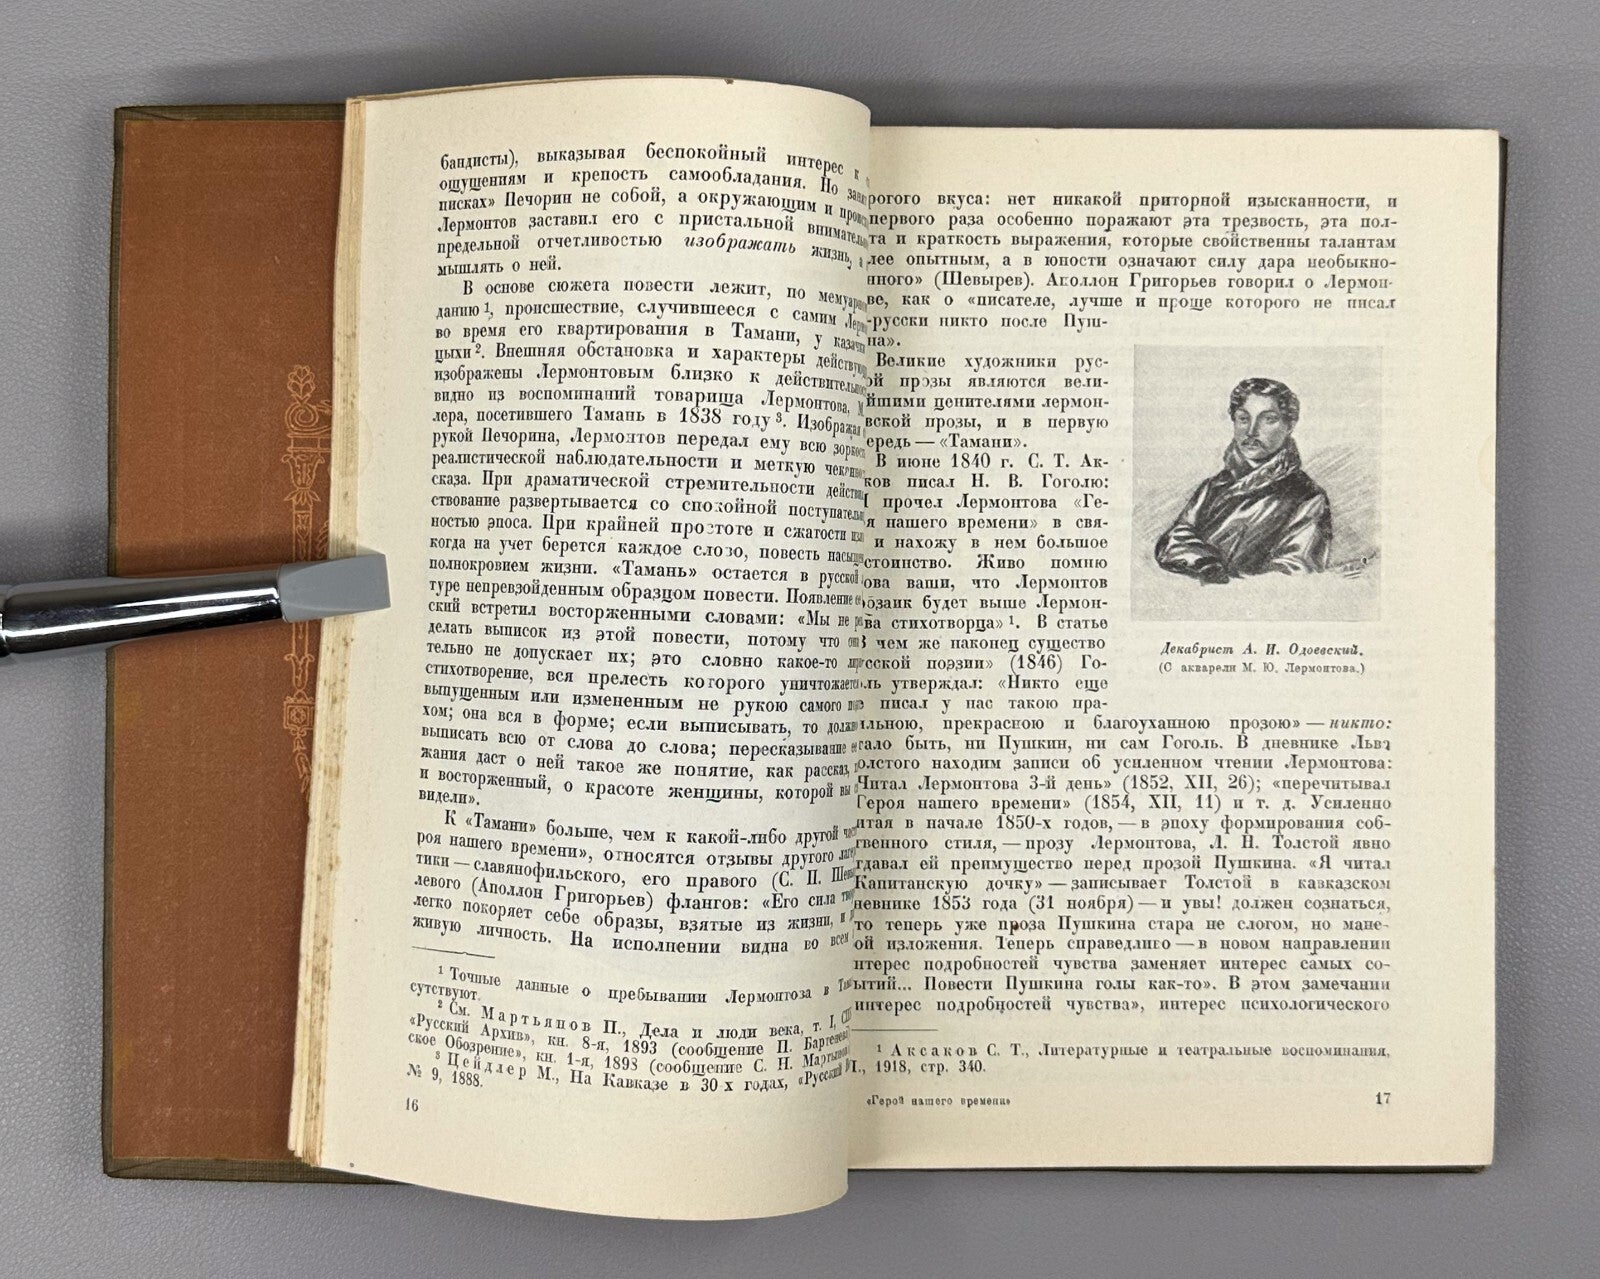 бандисты), выказывая беспокойный интерес к
ощущениям и крепость самообладания. Но
писках» Печорин не собой, а окружающим и
Лермонтов заставил его с пристальной
предельной отчетливостью изображать жизнь, а
мышлять о ней.
В основе сюжета повести лежит, по
данию¹, происшествие, случившееся с самим
во время его квартирования в Тамани, у
цыхи². Внешняя обстановка и характеры
изображены Лермонтовым близко к
видно из воспоминаний товарища Лермонтова, М
лера, посетившего Тамань в 1838 году³. Изображая
рукой Печорина, Лермонтов передал ему всю
реалистической наблюдательности и меткую
сказа. При драматической стремительности
ствование развертывается со спокойной
ностью эпоса. При крайней простоте и сжатости
когда на учет берется каждое слово, повесть
полнокровием жизни. «Тамань» остается в русской
туре непревзойденным образцом повести. Появление
ский встретил восторженными словами: «Мы не
делать выписок из этой повести, потому что
тельно не допускает их; это словно какое-то
стихотворение, вся прелесть которого уничтожается
выпущенным или измененным не рукою самого
хом; она вся в форме; если выписывать, то
выписать всю от слова до слова; пересказывание
жания даст о ней такое же понятие, как рассказ,
и восторженный, о красоте женщины, которой вы
видели».
К «Тамани» больше, чем к какой-либо другой
роя нашего времени», относятся отзывы другого
тики — славянофильского, его правого (С. П.
левого (Аполлон Григорьев) флангов: «Его сила
легко покоряет себе образы, взятые из жизни, и
живую личность. На исполнении видна во всем
¹ Точные данные о пребывании Лермонтова в
сутствуют.
² См. Мартьянов П., Дела и люди века, т. I,
«Русский Архив», кн. 8-я, 1893 (сообщение П.
ское Обозрение», кн. 1-я, 1898 (сообщение С. Н.
³ Цейдлер М., На Кавказе в 30-х годах, «Русский
№ 9, 1888.
16
рогого вкуса: нет никакой приторной изысканности, и
первого раза особенно поражают эта трезвость, эта пол-
та и краткость выражения, которые свойственны талантам
лее опытным, а в юности означают силу дара необыкно-
нного» (Шевырев). Аполлон Григорьев говорил о Лермон-
ве, как о «писателе, лучше и проще которого не писал
-русски никто после Пуш-
на».
Великие художники рус-
ой прозы являются вели-
йшими ценителями лермон-
вской прозы, и в первую
ередь — «Тамани».
В июне 1840 г. С. Т. Ак-
ков писал Н. В. Гоголю:
прочел Лермонтова «Ге-
я нашего времени» в свя-
и нахожу в нем большое
стоинство. Живо помню
ова ваши, что Лермонтов
озаик будет выше Лермон-
ва стихотворца»¹. В статье
чем же наконец существо
сской поэзии» (1846) Го-
ль утверждал: «Никто еще
писал у нас такою пра-
льною, прекрасною и благоуханною прозою» — никто:
тало быть, ни Пушкин, ни сам Гоголь. В дневнике Льва
олстого находим записи об усиленном чтении Лермонтова:
Читал Лермонтова 3-й день» (1852, XII, 26); «перечитывал
Героя нашего времени» (1854, XII, 11) и т. д. Усиленно
итая в начале 1850-х годов, — в эпоху формирования соб-
твенного стиля, — прозу Лермонтова, Л. Н. Толстой явно
тдавал ей преимущество перед прозой Пушкина. «Я читал
Капитанскую дочку» — записывает Толстой в кавказском
невнике 1853 года (31 ноября) — и увы! должен сознаться,
то теперь уже проза Пушкина стара не слогом, но мане-
ой изложения. Теперь справедливо — в новом направлении
нтерес подробностей чувства заменяет интерес самых со-
ытий... Повести Пушкина голы как-то». В этом замечании
интерес подробностей чувства», интерес психологического
Декабрист А. И. Одоевский.
(С акварели М. Ю. Лермонтова.)
¹ Аксаков С. Т., Литературные и театральные воспоминания,
1918, стр. 340.
«Герой нашего времени»
17